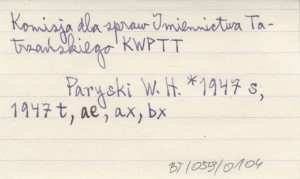 Komisja dla spraw Imiennictwa Ta-
trzańskiego KWPTT
Paryski W. H. *1947 s,
1947 t, ae, ax, bx
BT/059/0104